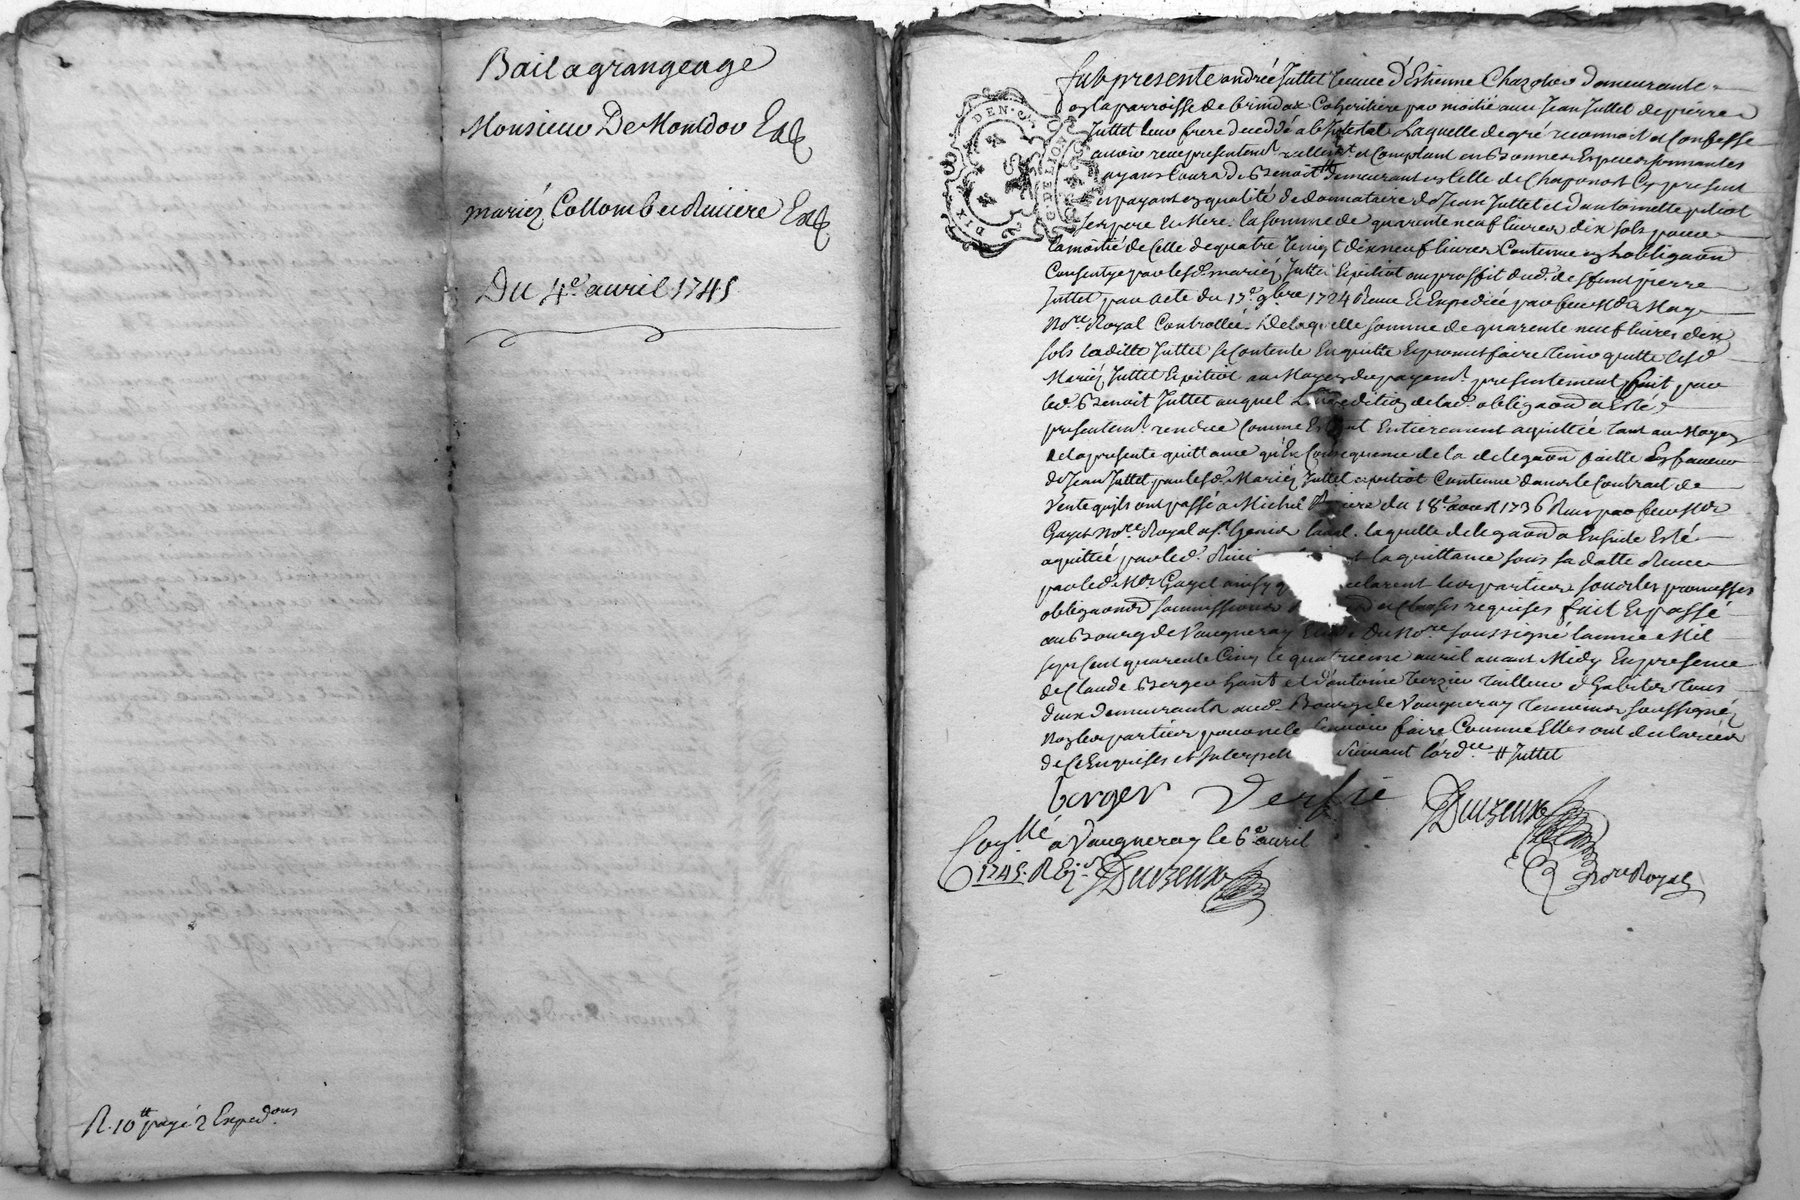 Bail a grangeage
Monsieur De Montdor Ea&
mariéz Collomb et Riviere Ea&
Du 4e. auril 1745
R. 10tt payé 2 Exped.ons
DIX DEN.
G. DE LION
fut presente andrée Juttet veuue d'Estienne Chazotier demeurante
en la parroisse de brindax Coheritiere par moitié auec Jean Juttet de pierre
Juttet leur frere decedé ab Intestat Laquelle de gré reconnoit et Confesse
auoir receu presentemt. reellemt. et Comptant en bonnes Especes sonnantes
ayans Cours de Benoist # demeurant en Celle de Chaponost Cy present
et payant en qualité de donnataire de Jean Juttet et d'antoinette pitiot
ses pere Et Mere. la somme de quarente neuf liures dix sols pour
la moitié de Celle de quatre vingt dix neuf liures Contenue en l'obligaon
Consentye par lesd. mariéz Juttet Et pitiot au proffit dud. deffunt pierre
Juttet par acte du 17e. 9bre 1724 Receue Et Expediée par feu Me May
Nore. Royal Controllée. De laquelle somme de quarente neuf liures dix
sols laditte Juttet se Contente En quitte Et promet faire tenir quitte lesd.
Mariéz Juttet Et pitiot au Moyen du payemt. presentement fait par
led. Benoit Juttet auquel L'Expedition de lad. obligaon a Esté
presentemt. rendue Comme Estant Entierement aquittée tant au Moyen
de la presente quittance qu'En Consequence de la delegaon faitte En faueur
de Jean Juttet par lesd. Mariéz Juttet et pitiot Contenue dans le Contrait de
Vente qu'ils ont passé a Michel Riuiere du 18e. aoust 1736 Receu par feu Me
Gayet Nore. Royal a St. Genis Laual. laquelle delegaon a Ensuite Esté
aquittée par led. Riui la quittance sous sa datte Receue
par led. Me Gayet ainsy q declarent les parties sous les promesses
obligaons soumissions et Clauses requises fait Et passé
au Bourg de Vaugneray Etude Du Nore. soussigné l'année Mil
sept Cent quarente Cinq le quatrieme auril auant Midy En presence
de Claude Berger hant. et d'antoine Verzier tailleur d'habits tous
deux demeurants aud. Bourg de Vaugneray temoins soussignéz
Non les parties pour ne le sçauoir faire Comme Elles ont declaréés
de Ce Enquises et Interpell Suiuant l'ordce. # Juttet
berger Versie Duizeux
Nore Royal
Conllé a Vaugneray le 6e auril
1745. R Duizeux